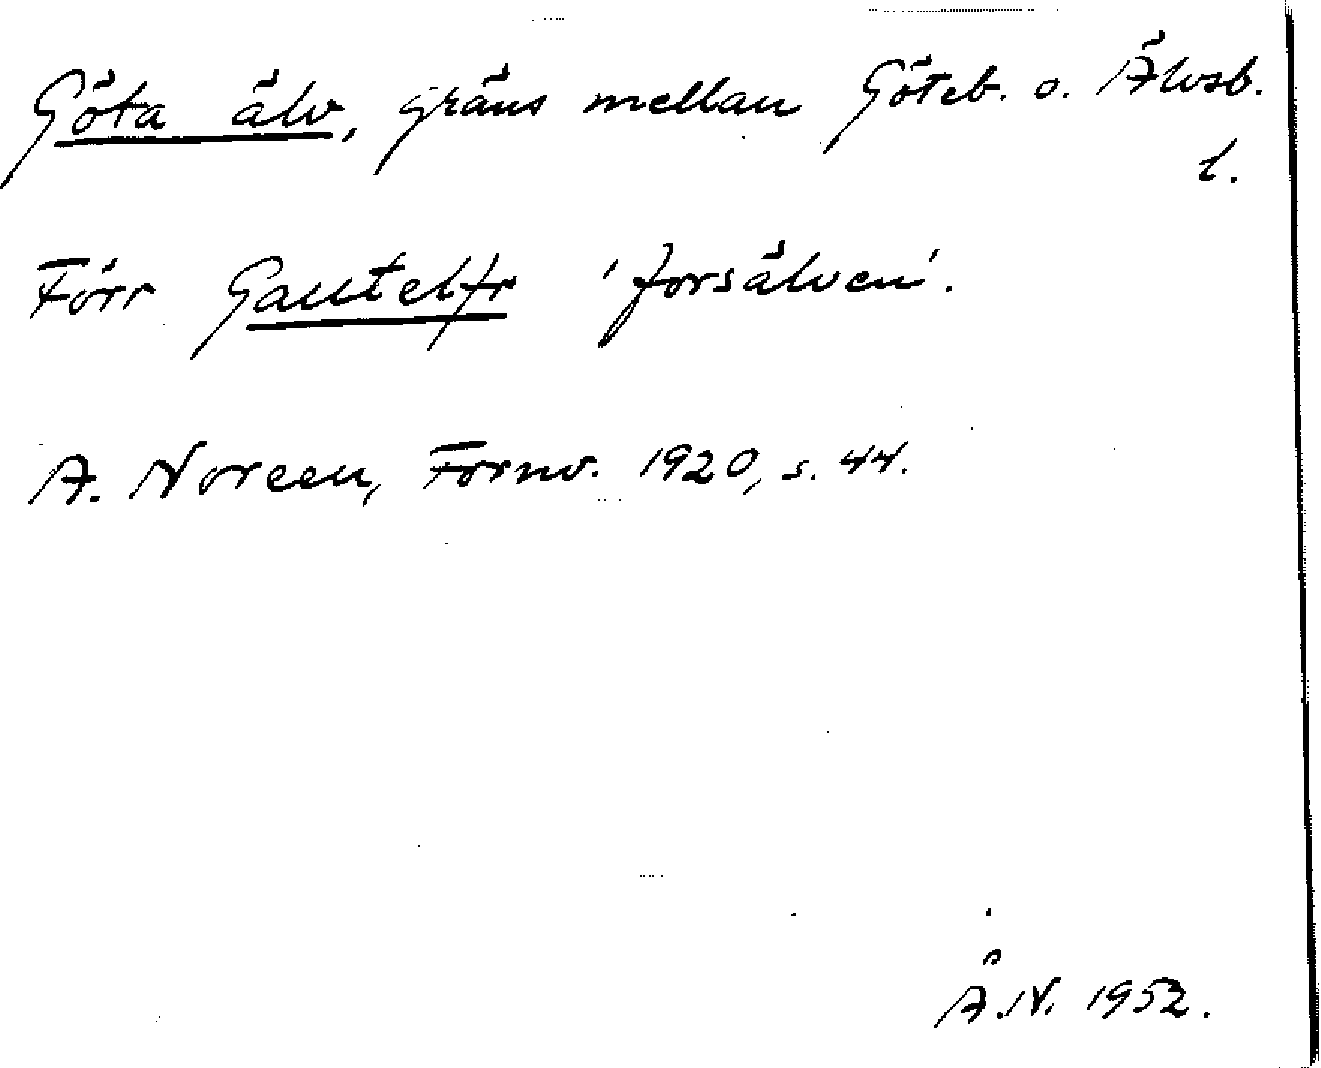 Göta älv, gräns mellan Göteb. o. Älvsb.
l.
Förr Gautelfr 'forsälven'.
A. Noreen, Fornv. 1920, s. 44.
Å.N. 1952.